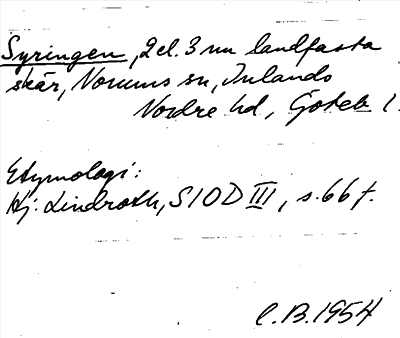 Syringen, 2 el. 3 nu landfasta
skär, Norums sn, Inlands
Nordre hd, Göteb l.
Etymologi:
Hj. Lindroth, SIOD III, s. 66 f.
C.B. 1954